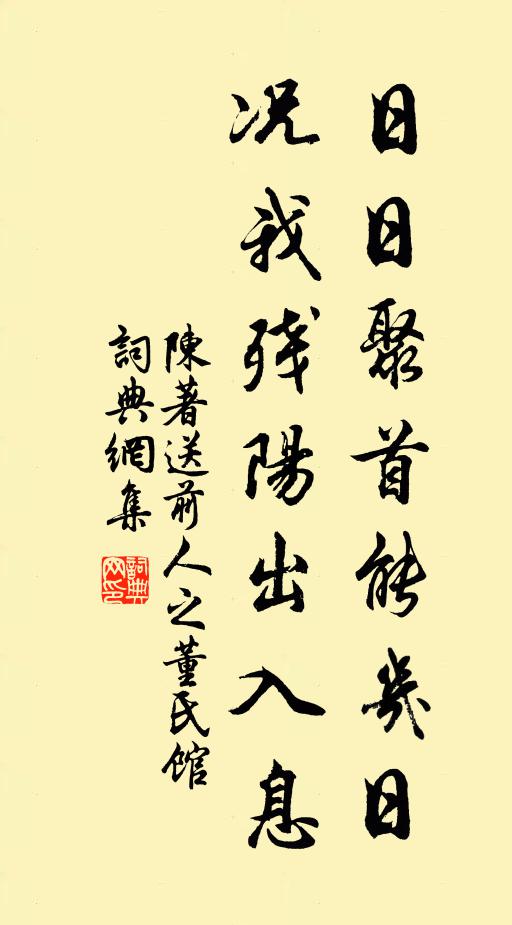 日日聚首能幾日
况我残陽出入息
陳著送前人之董氏館
詞典網集
詞典網印